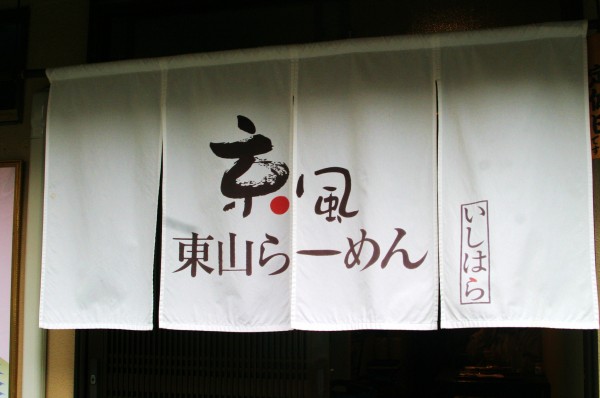 京風
東山らーめん
いしはら